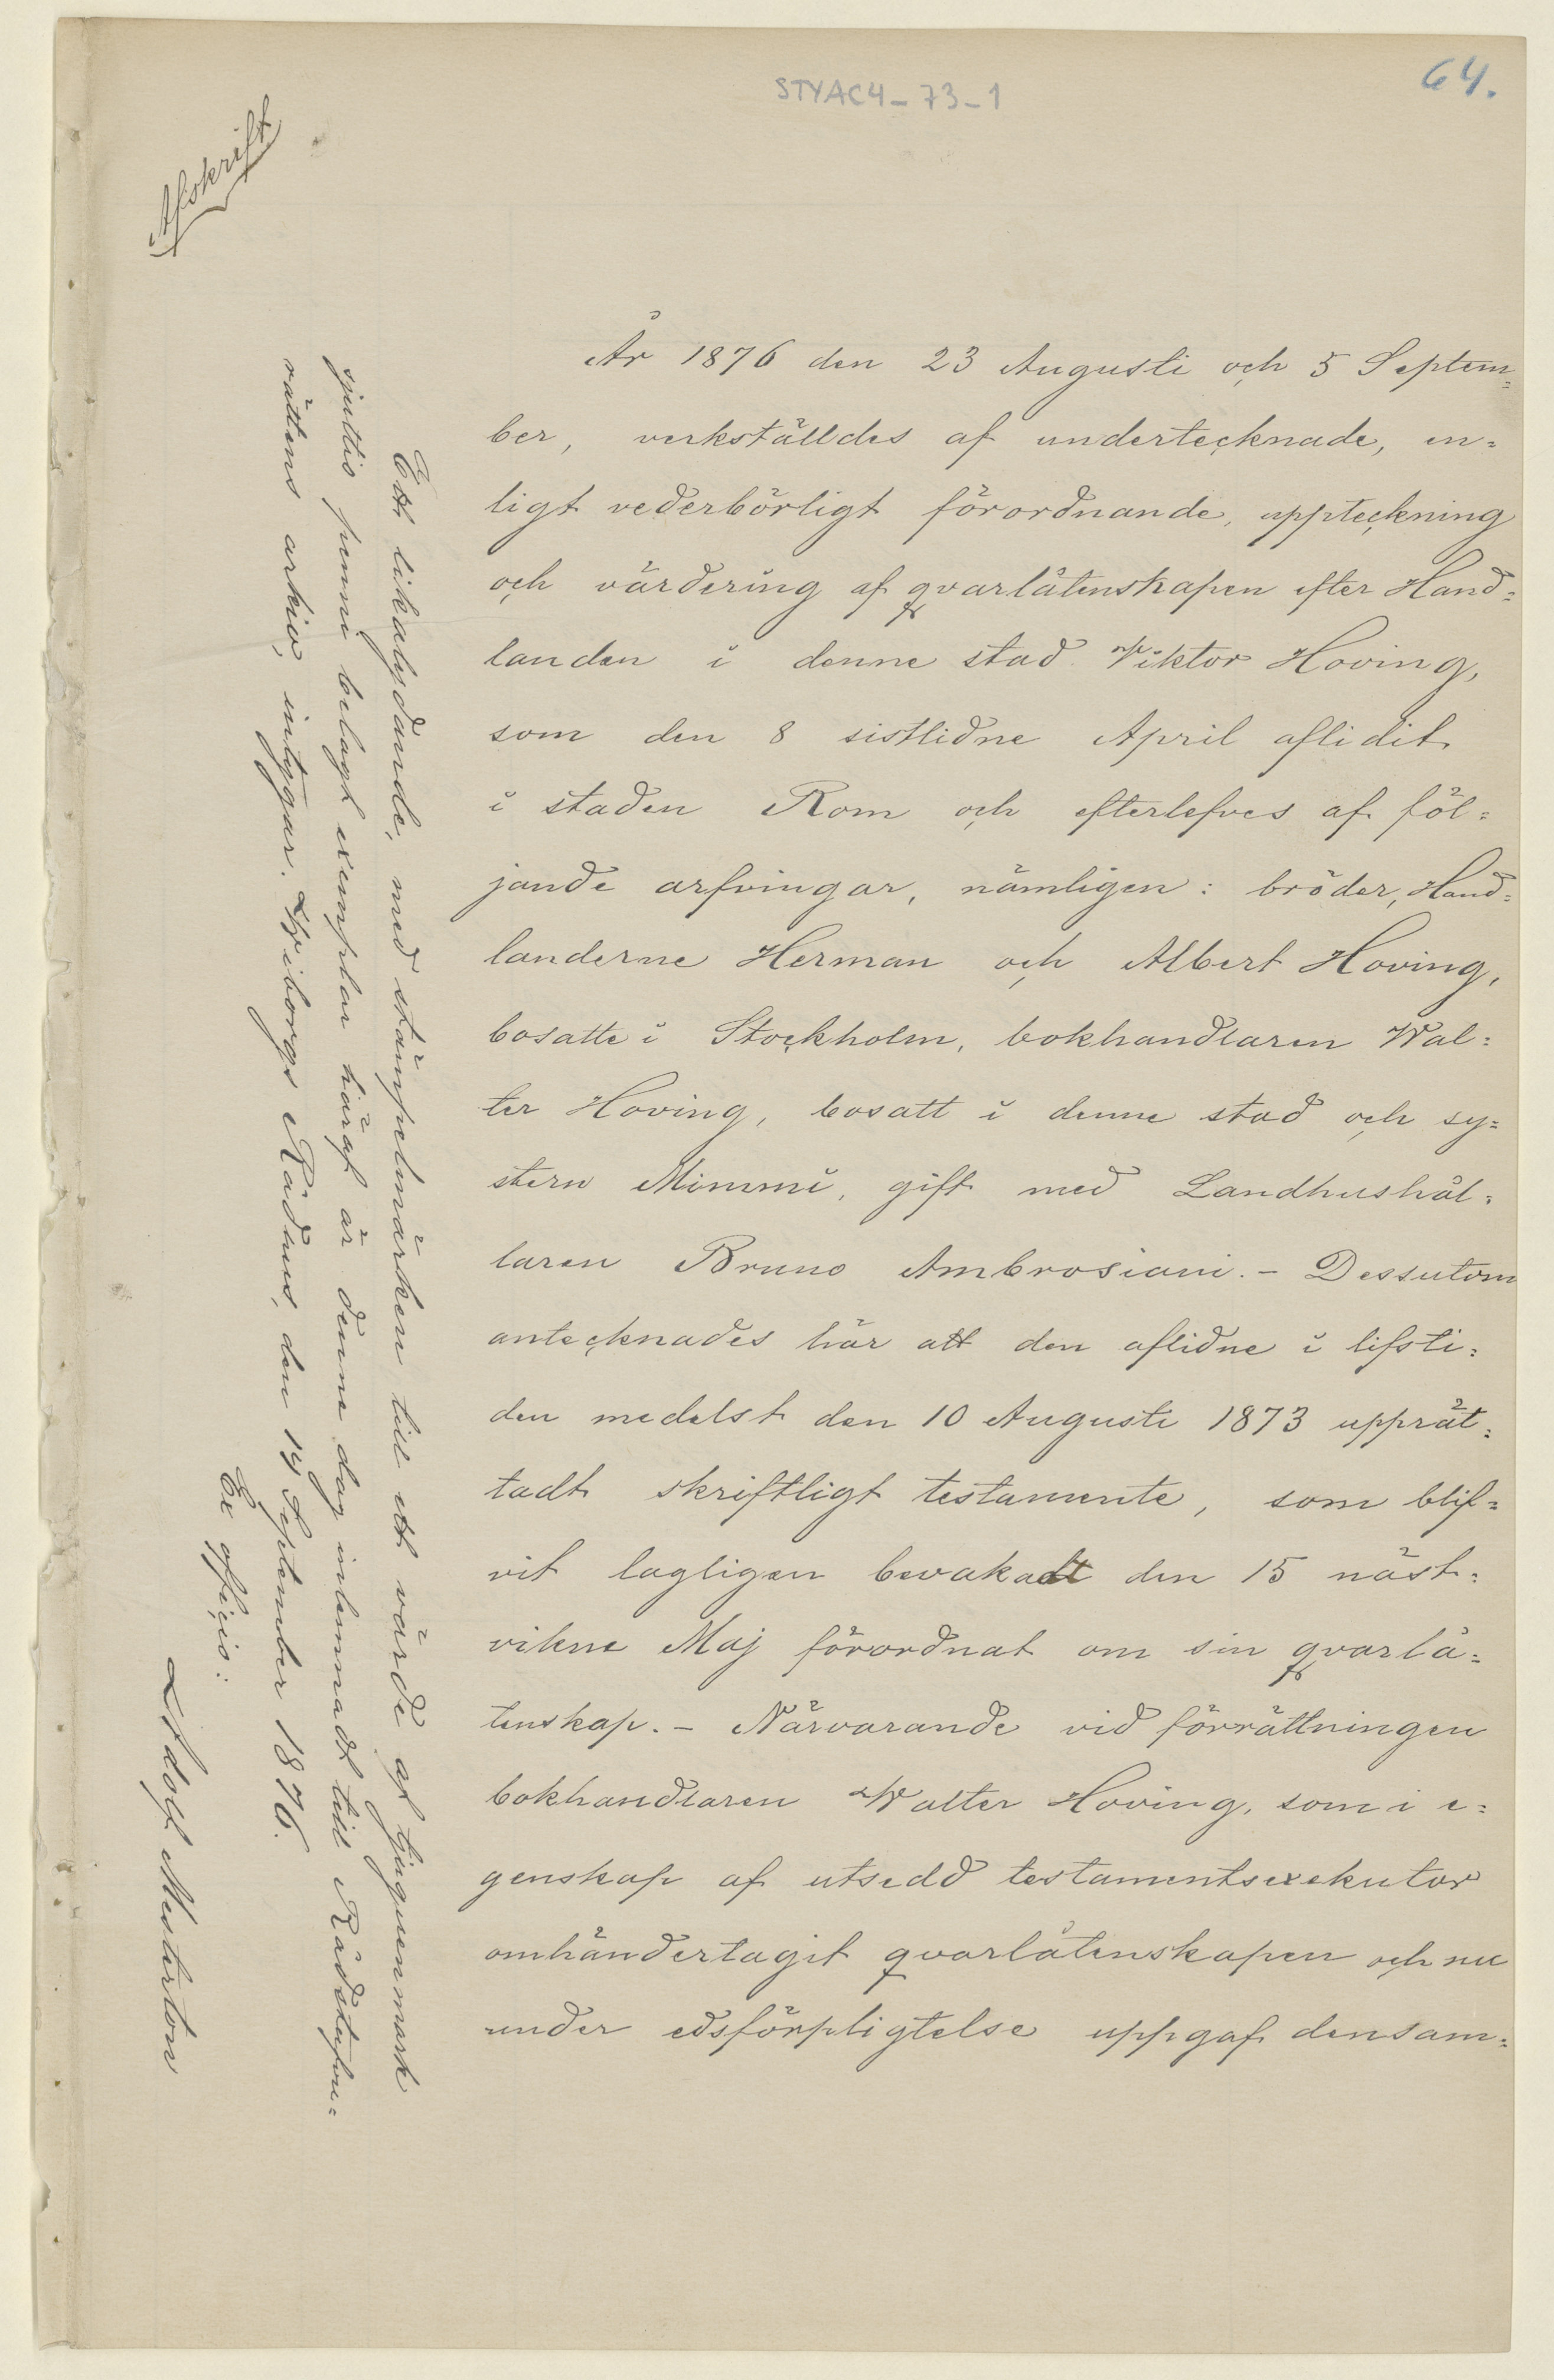 STYAC4-73-1
64.
Afskrift
År 1876 den 23 Augusti och 5 Septem=
ber, verkställdes af undertecknade, en=
ligt vederbörligt förordnande, uppteckning
och värdering af qvarlåtenskapen efter Hand=
landen i denne stad Viktor Hoving,
som den 8 sistlidne April aflidit
i staden Rom och efterlefves af föl=
jande arfvingar, nämligen: bröder, Hand=
landerne Herman och Albert Hoving,
bosatte i Stockholm, bokhandlaren Wal=
ter Hoving, bosatt i denne stad och sy=
stern Mimmi, gift med Landhushål=
laren Bruno Ambrosiani. - Dessutom
antecknades här att den aflidne i lifsti=
den medelst den 10 Augusti 1873 upprät=
tadt skriftligt testamente, som blif=
vit lagligen bevakadt den 15 näst=
vikne Maj förordnat om sin qvarlå=
tenskap. - Närvarande vid förrättningen
bokhandlaren Walter Hoving, som i e=
genskap af utsedd testamentsexekutor
omhändertagit qvarlåtenskapen och nu
under edsförpligtelse uppgaf densam=
Ett likalydande, med stämpelmärken till ett värde af tjuguen mark
sjuttio penni belagt exemplar häraf är denne dag inlemnadt till Rådstufvu=
rättens arkiv, intygar. Wiborgs Rådhus, den 14 September 1876.
Ex officio:
Adolf Mesterton